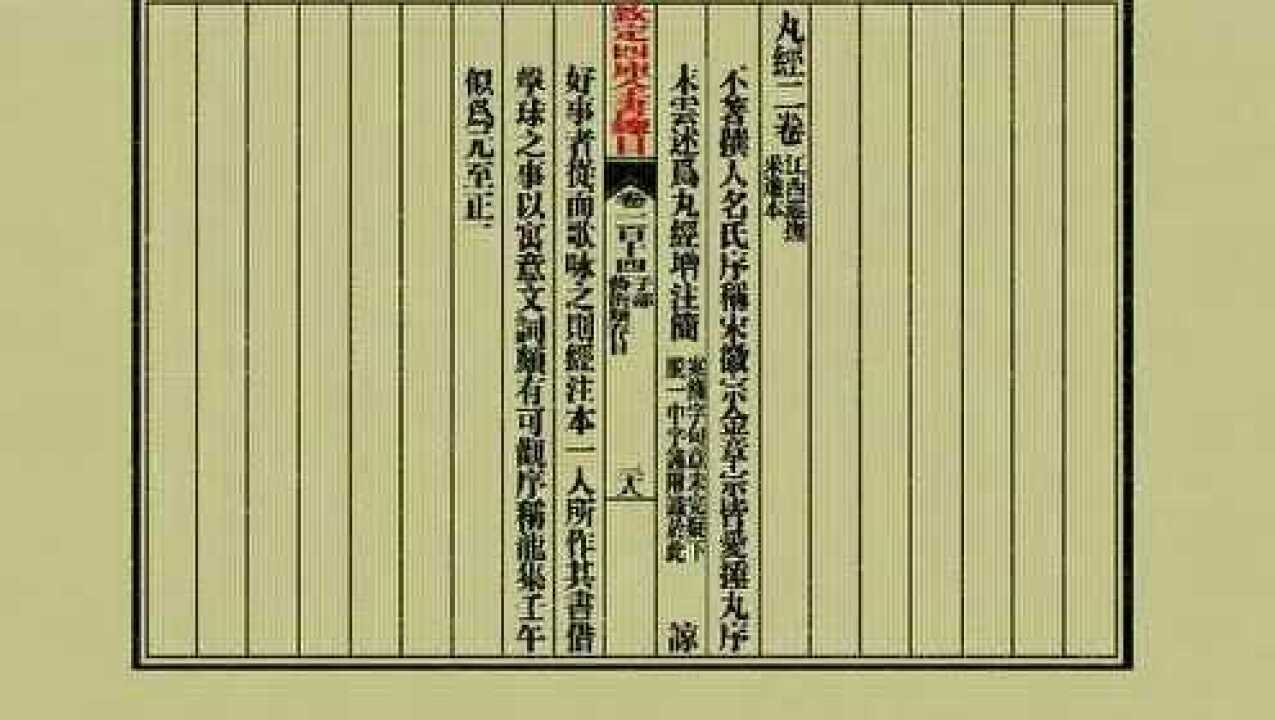 丸經二卷
江西巡撫
采進本
不著撰人名氏序稱宋徽宗金章宗皆愛捶丸序
末云述爲丸經增注簡
案簡字句意未完疑下
脫一中字謹附識於此
諒
欽定四庫全書總目
卷一百十四
子部
二八
好事者從而歌咏之則經注本一人所作其書借
擊球之事以寓意文詞頗有可觀序稱龍集壬午
似爲元至正